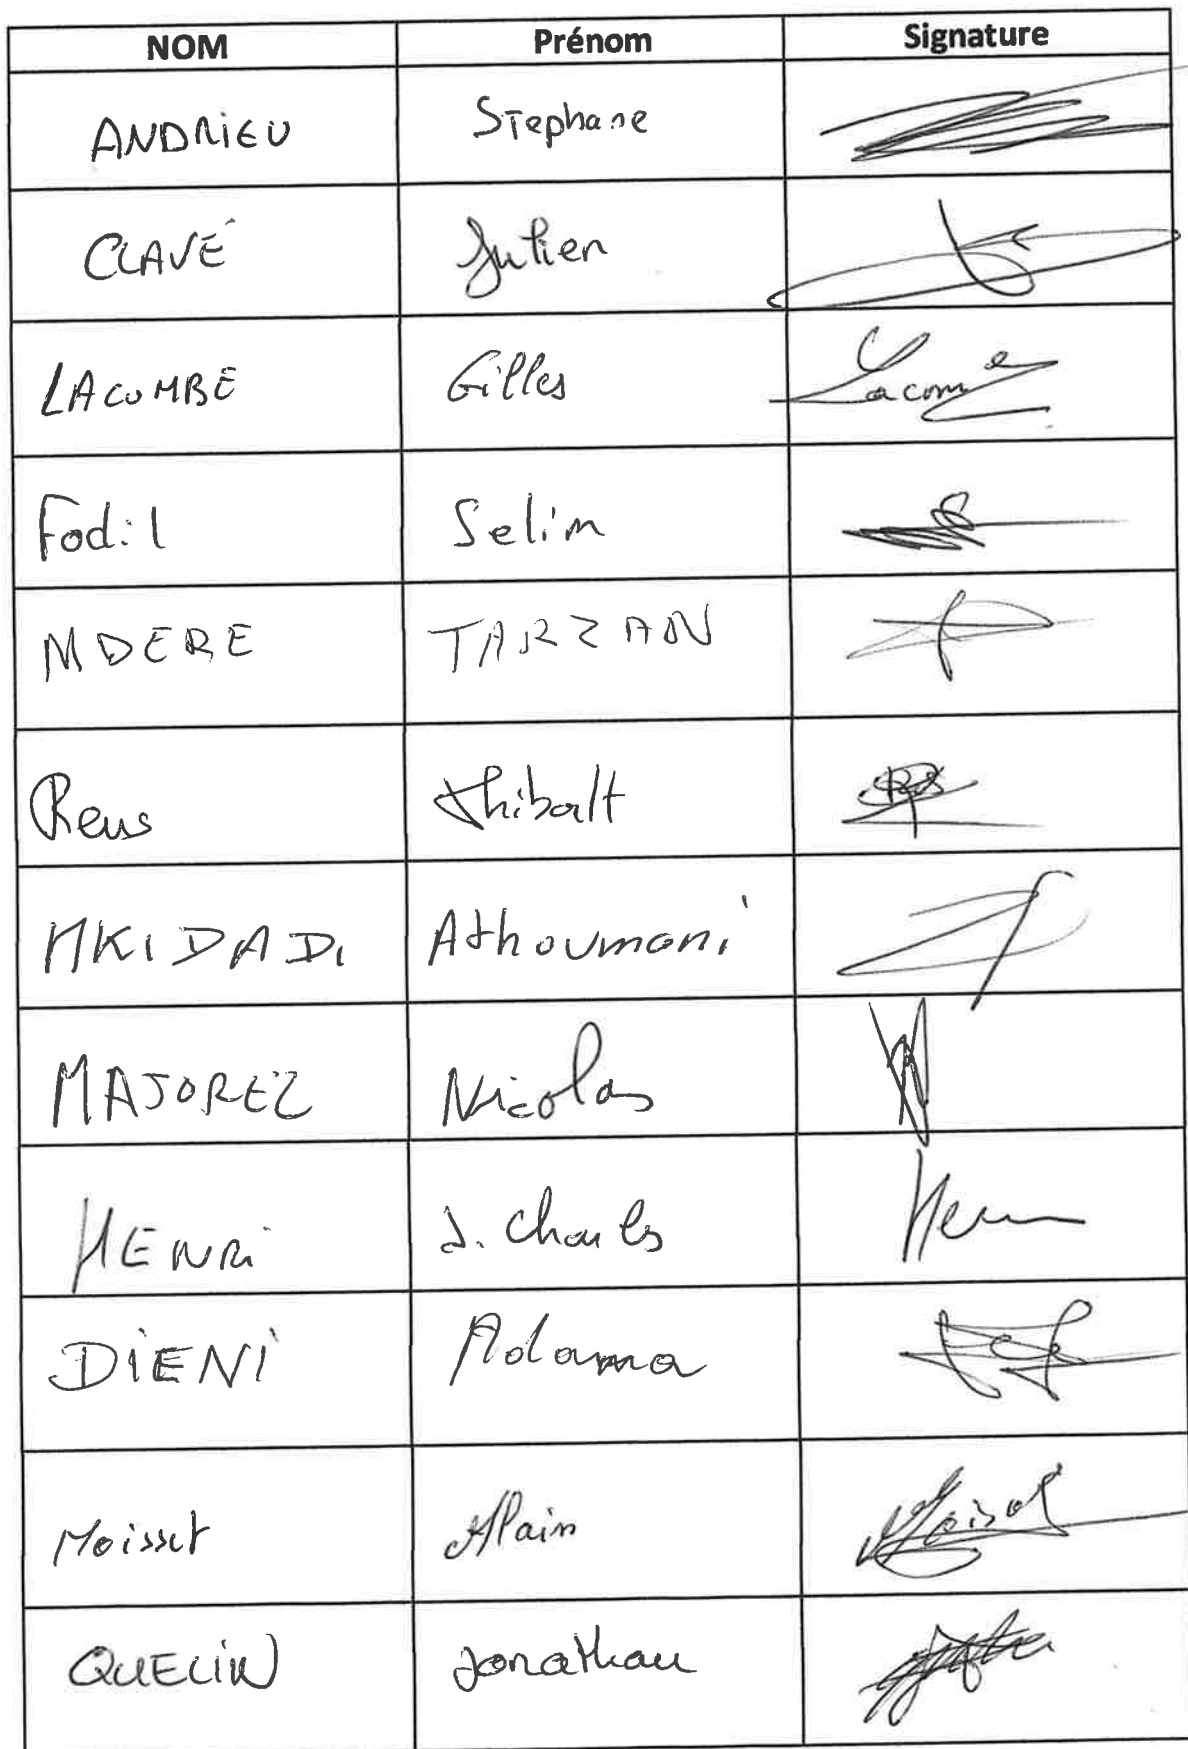 NOM Prénom Signature
ANDRIEU Stephane
CLAVÉ Julien
LACOMBE Gilles Lacom
Fodil Selim
MDERE TARZAN
Reus Thibalt
MKIDADI Athoumani
MAJOREZ Nicolas
HENRI J. Charles Hen
DIENI Adama
Moisset Alain
QUELIN Jonathan